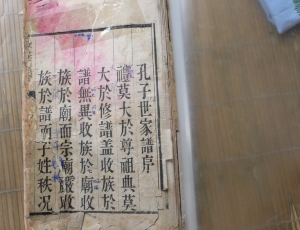 孔子世家譜序
禮莫大於尊祖典莫
大於修譜蓋收族於
譜無異收族於廟收
族於廟而宗廟嚴收
族於譜而子姓秩况